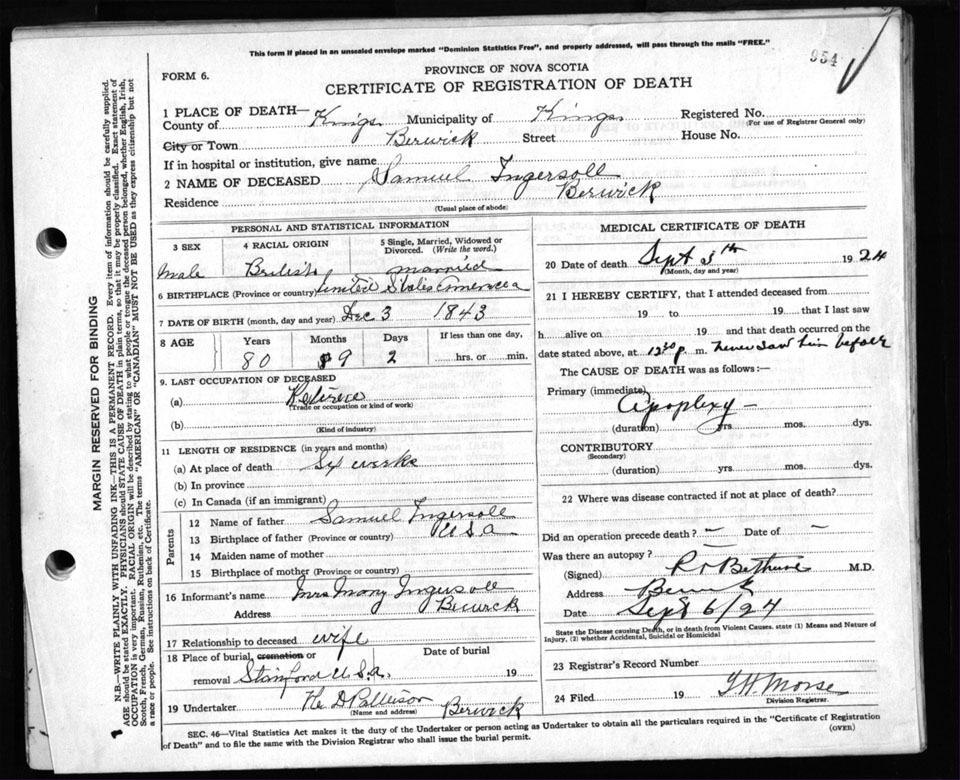 This form if placed in an unsealed envelope marked "Dominion Statistics Free", and properly addressed, will pass through the mails "FREE."
954
FORM 6.
PROVINCE OF NOVA SCOTIA
CERTIFICATE OF REGISTRATION OF DEATH
1 PLACE OF DEATH—
County of Kings Municipality of Kings Registered No.
(For use of Registrar General only)
City or Town Berwick Street House No.
If in hospital or institution, give name
2 NAME OF DECEASED Samuel Ingersoll
Residence Berwick
(Usual place of abode)
PERSONAL AND STATISTICAL INFORMATION
3 SEX 4 RACIAL ORIGIN 5 Single, Married, Widowed or Divorced. (Write the word.)
Male British married
6 BIRTHPLACE (Province or country) United States America
7 DATE OF BIRTH (month, day and year) Dec 3 1843
8 AGE Years Months Days If less than one day,
80 9 2 hrs. or min.
9. LAST OCCUPATION OF DECEASED
(a) Retired
(Trade or occupation or kind of work)
(b)
(Kind of industry)
11 LENGTH OF RESIDENCE (in years and months)
(a) At place of death Six weeks
(b) In province
(c) In Canada (if an immigrant)
Parents
12 Name of father Samuel Ingersoll
13 Birthplace of father (Province or country) U S a
14 Maiden name of mother
15 Birthplace of mother (Province or country)
16 Informant's name Mrs Mary Ingersoll
Address Berwick
17 Relationship to deceased wife
18 Place of burial, cremation or removal Stamford U.S.a. Date of burial 19
19 Undertaker Berwick
(Name and address)
MEDICAL CERTIFICATE OF DEATH
20 Date of death Sept 5th 1924
(Month, day and year)
21 I HEREBY CERTIFY, that I attended deceased from
19 to 19 that I last saw
h alive on 19 and that death occurred on the
date stated above, at 12 30 p m. never saw him before
The CAUSE OF DEATH was as follows:—
Primary (immediate) Apoplexy —
(duration) yrs mos. dys.
CONTRIBUTORY
(Secondary)
(duration) yrs mos. dys.
22 Where was disease contracted if not at place of death?
Did an operation precede death? — Date of —
Was there an autopsy? —
(Signed) Bethune M.D.
Address Berwick
Date Sept 6/24
State the Disease causing Death, or in death from Violent Causes. state (1) Means and Nature of Injury, (2) whether Accidental, Suicidal or Homicidal
23 Registrar's Record Number
24 Filed 19 Morse
Division Registrar.
SEC. 46—Vital Statistics Act makes it the duty of the Undertaker or person acting as Undertaker to obtain all the particulars required in the "Certificate of Registration
of Death" and to file the same with the Division Registrar who shall issue the burial permit. (OVER)
MARGIN RESERVED FOR BINDING
N.B.—WRITE PLAINLY WITH UNFADING INK—THIS IS A PERMANENT RECORD. Every item of information should be carefully supplied.
AGE should be stated EXACTLY. PHYSICIANS should STATE CAUSE OF DEATH in plain terms, so that it may be properly classified. Exact statement of
OCCUPATION is very important. RACIAL ORIGIN will be described by stating to what people or tongue the deceased person belonged, whether English, Irish,
Scotch, French, German, Russian, Ruthenian, etc. The terms "AMERICAN" OR "CANADIAN" MUST NOT BE USED as they express citizenship but not
a race or people. See instructions on back of Certificate.